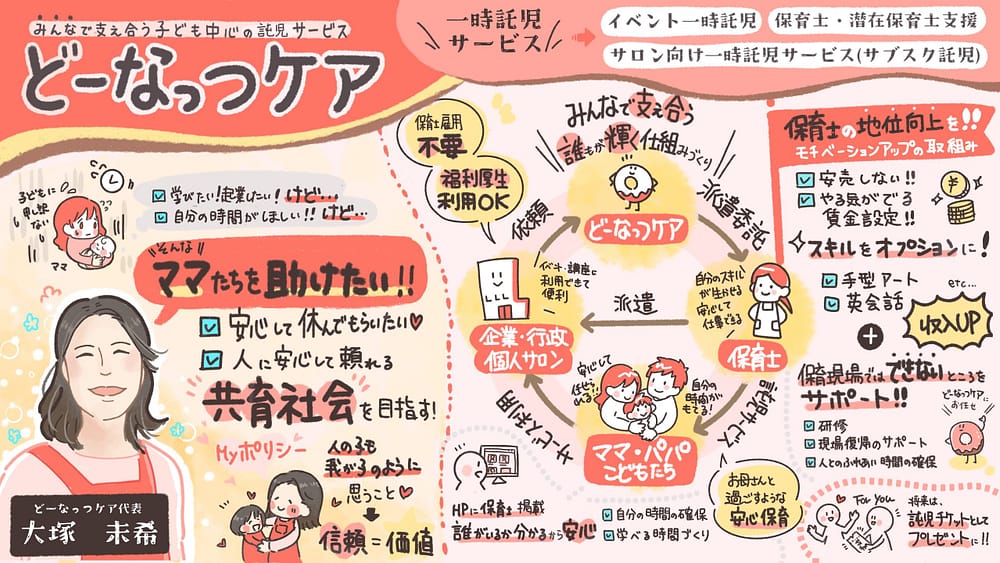 みんなで支え合う子ども中心の託児サービス
どーなっつケア
一時託児
サービス
イベント一時託児
保育士・潜在保育士支援
サロン向け一時託児サービス(サブスク託児)
子どもに
申し訳
ない
ママ
学びたい!起業したい!けど…
自分の時間がほしい!!けど…
そんな
ママたちを助けたい!!
安心して休んでもらいたい♥
人に安心して頼れる
共育社会を目指す!
Myポリシー
人の子も
我が子のように
思うこと♥
信頼=価値
どーなっつケア代表
大塚 未希
保育士雇用
不要
福利厚生
利用OK
みんなで支え合う
誰もが輝く仕組みづくり
どーなっつケア
依頼
派遣委託
イベント・講座に
利用できて
便利
企業・行政
個人サロン
派遣
自分のスキル
が生かせる
安心して
仕事できる
保育士
安心して
任せられる!
自分の
時間が
もてる!
サービス利用
託児サービス
ママ・パパ
こどもたち
HPに保育士掲載
誰がいるか分かるから安心
自分の時間の確保
学べる時間づくり
お母さんと
過ごすような
安心保育
保育士の地位向上を!!
モチベーションアップの取組み
安売しない!!
やる気がでる
賃金設定!!
スキルをオプションに!
手型アート
英会話
etc...
+
収入UP
保育現場ではできないところを
サポート!!
どーなっつケアに
お任せ
研修
現場復帰のサポート
人とのふれあい時間の確保
For You
将来は、
託児チケットとして
プレゼントに!!